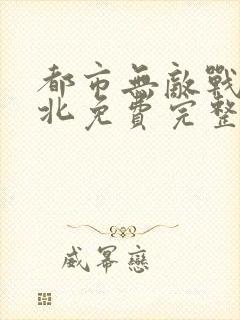 都市無敵戰
北免費完整
威冪戀